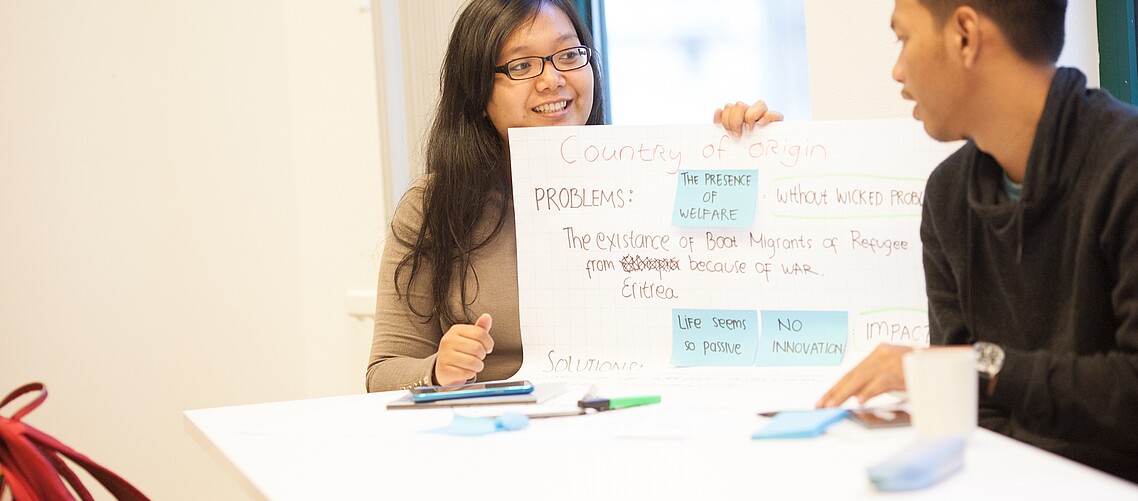 Country of Origin
PROBLEMS:
THE PRESENCE
OF
WELFARE
: without WICKED PROBL
The existance of Boat Migrants of Refugee
from because of WAR.
Eritrea
Life seems
so passive
NO
INNOVATION
: IMPACT
SOLUTIONS: